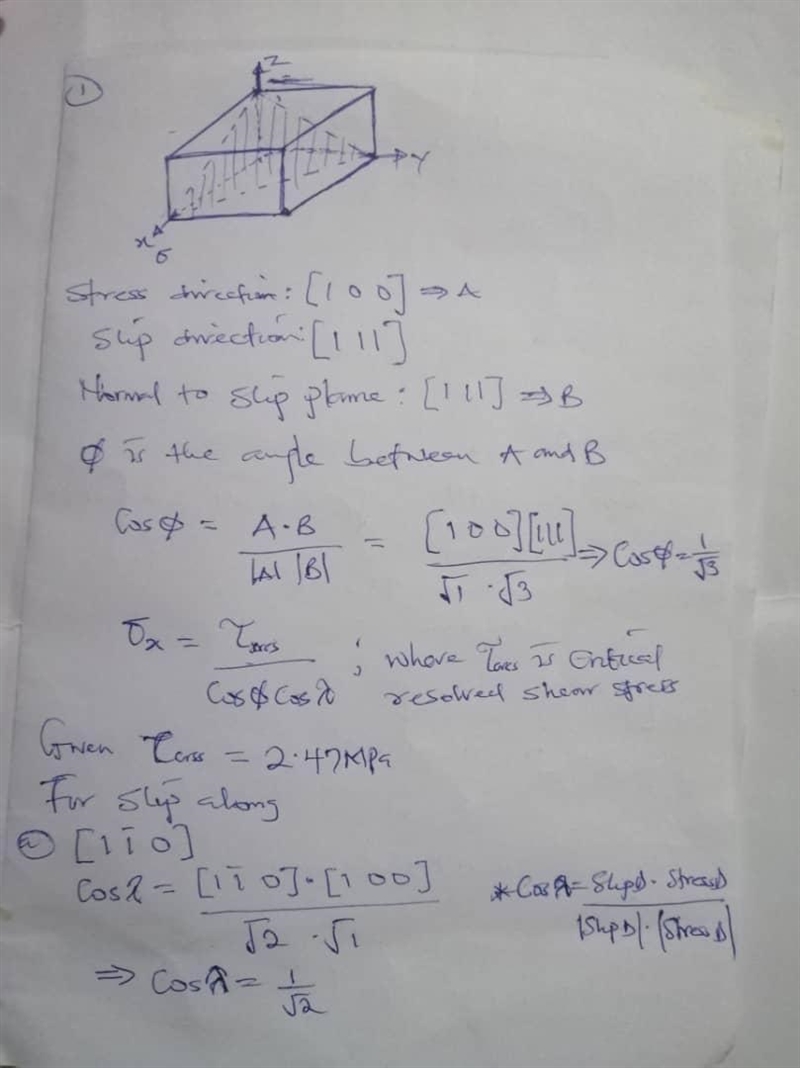 ①
Z
Y
x
σ
Stress direction: [1 0 0] ⇒ A
Slip direction: [1 1 1]
Normal to Slip plane: [1 1 1] ⇒ B
φ is the angle between A and B
Cosφ = A·B / |A| |B| = [1 0 0][111] / √1 · √3 ⇒ Cosφ = 1/√3
σx = τcrss / Cosφ Cosλ ; where τcrss is Critical
resolved shear stress
Given τcrss = 2.47MPa
For Slip along
ⓐ [1 1̄ 0]
Cosλ = [1 1̄ 0]·[1 0 0] / √2 · √1
*Cosλ = SlipD · StressD / |SlipD|·|StressD|
⇒ Cosλ = 1/√2